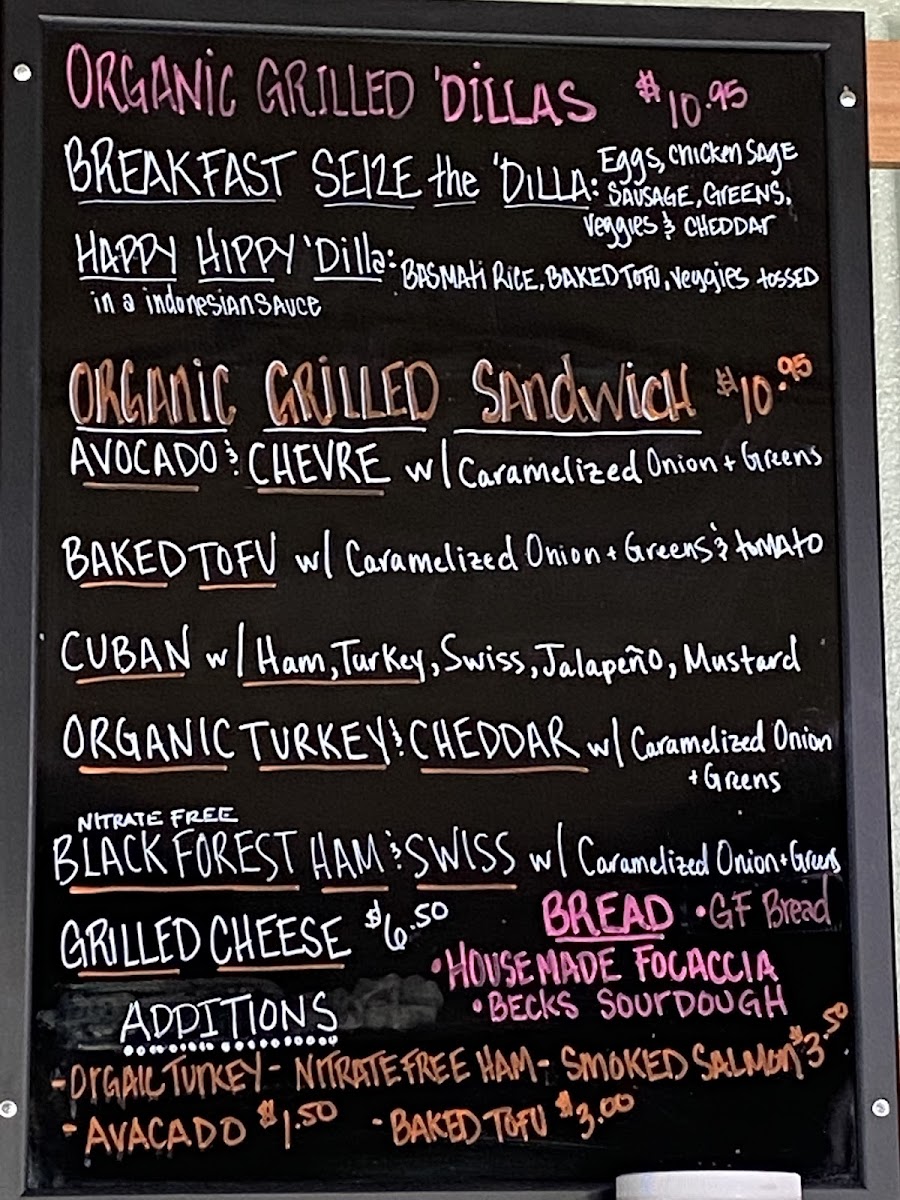 ORGANIC GRILLED 'DILLAS $10.95
BREAKFAST SEIZE the 'DILLA: Eggs, CHICKEN SAGE
SAUSAGE, GREENS,
Veggies & CHEDDAR
HAPPY HIPPY 'Dilla: BASMATI RICE, BAKED TOFU, Veggies tossed
in a indonesian SAUCE
ORGANIC GRILLED SANDWICH $10.95
AVOCADO & CHEVRE w/ Caramelized Onion + Greens
BAKED TOFU w/ Caramelized Onion + Greens & tomato
CUBAN w/ Ham, Turkey, Swiss, Jalapeño, Mustard
ORGANIC TURKEY & CHEDDAR w/ Caramelized Onion
+ Greens
NITRATE FREE
BLACK FOREST HAM & SWISS w/ Caramelized Onion + Greens
GRILLED CHEESE $6.50
BREAD • GF Bread
• HOUSEMADE FOCACCIA
• BECKS SOURDOUGH
ADDITIONS
- ORGAIC TURKEY - NITRATE FREE HAM - SMOKED SALMON $3.50
- AVACADO $1.50 - BAKED TOFU $3.00